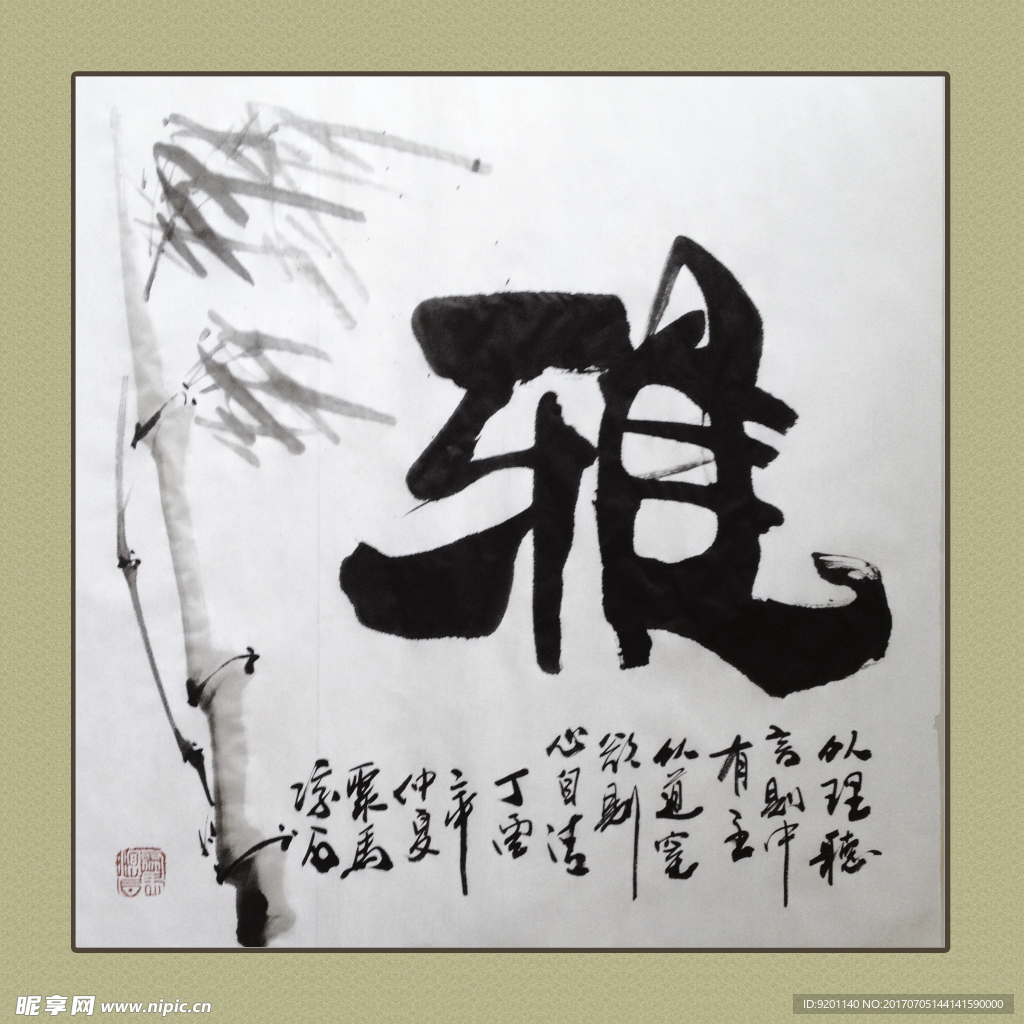 雅
以理聽
言則中
有主
以道窒
欲則
心自清
丁酉
年
仲夏
昵享网 www.nipic.cn
ID:9201140 NO:20170705144141590000